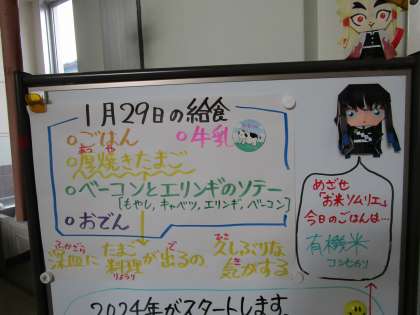 1月29日の給食
○ごはん ○牛乳
○厚焼きたまご
○ベーコンとエリンギのソテー
[もやし、キャベツ、エリンギ、ベーコン]
○おでん
深皿にたまご料理が出るの久しぶりな気がする
ふかざら りょうり で ひさ き
2024年がスタートします。
めざせ
「お米ソムリエ」
今日のごはんは…
有機米
コシヒカリ